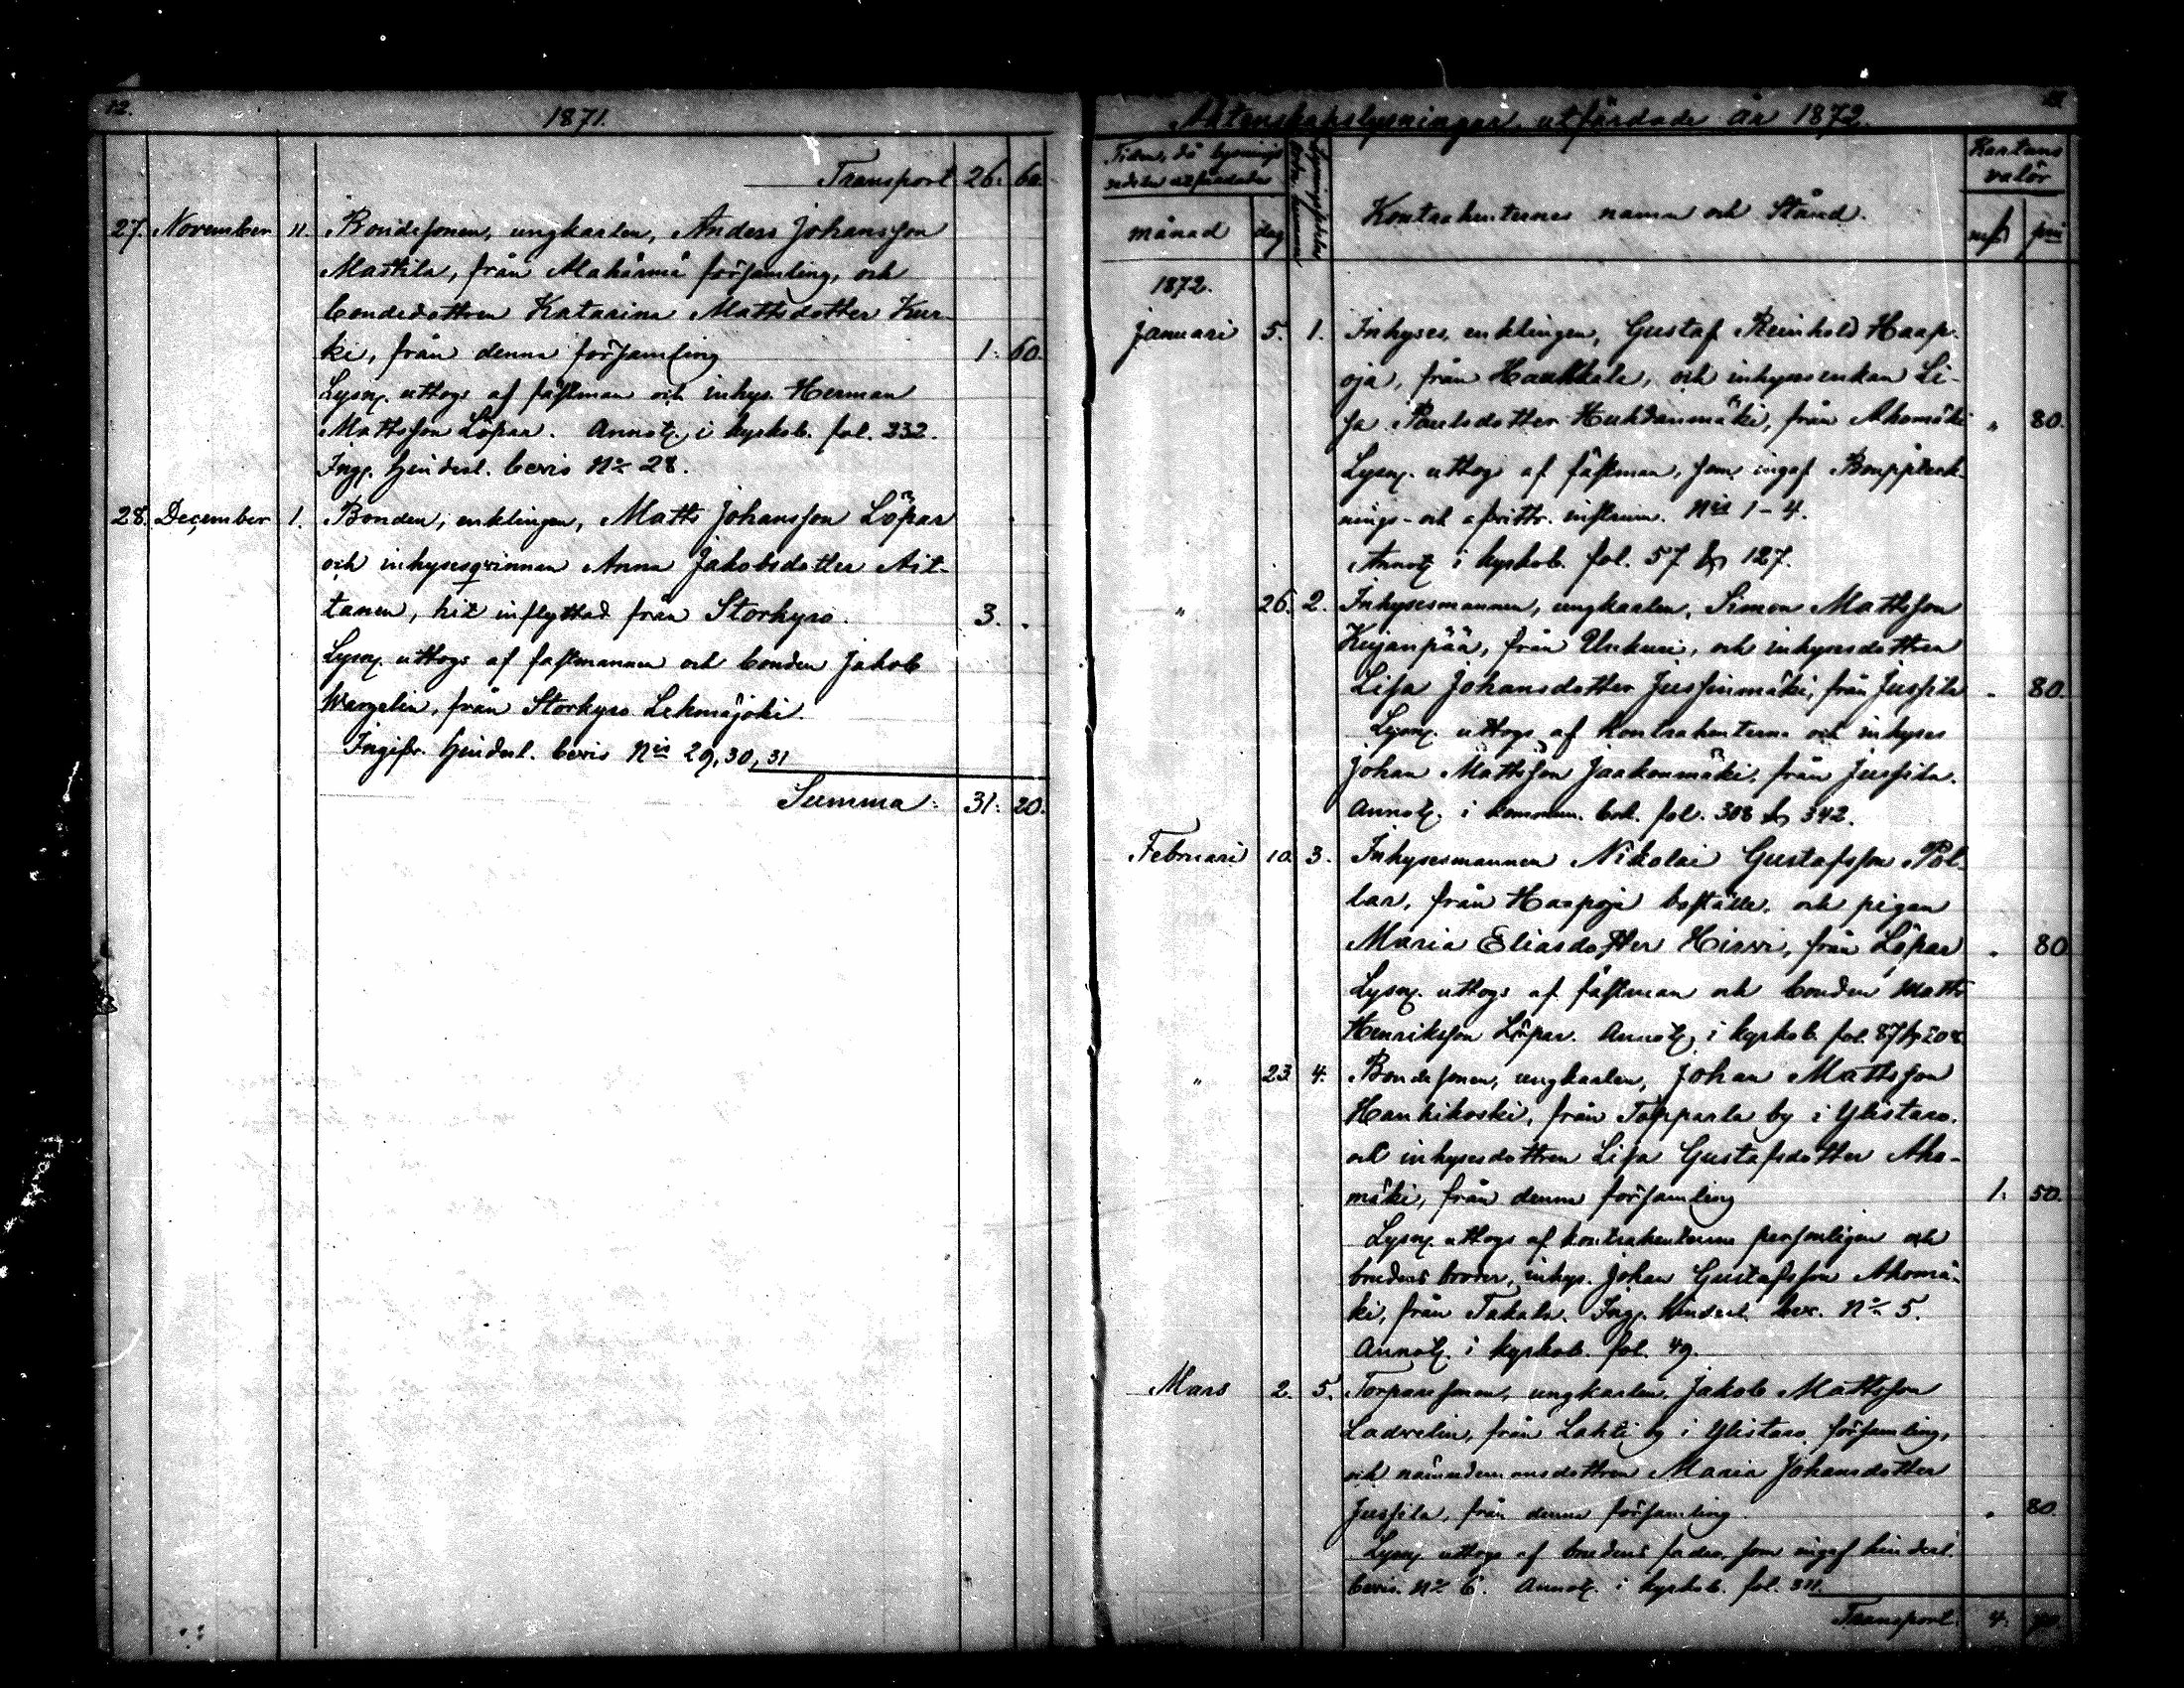 12.
1871.
Transport 26. 60.
27. November 11. Bondesonen, ungkarlen, Anders Johansson
Mastila, från Alahärmä församling, och
bondedottren Katarina Mattsdotter Kur-
ki, från denna församling 1. 60.
Lysn. uttogs af fästman och inhys. Herman
Mattsson Löpar. Annot. i kyrkob. fol. 232.
Ing. hindersl. bevis No 28.
28. December 1. Bonden, enklingen, Matts Johansson Löpar
och inhysesqvinnan Anna Jakobsdotter Ait-
tanen, hit inflyttad från Storkyro. 3. "
Lysn. uttogs af fästmannen och bonden Jakob
Wargelin, från Storkyro Lehmäjoki.
Ingifv. hindersl. bevis Nis 29, 30, 31
Summa: 31. 20.
Äktenskapslysningar, utfärdade år 1872.
Tiden, då lysnings
sedeln utfärdades
månad dag
Kontrahenternes namn och Stånd.
Kartans
valör
mk pni
1872.
Januari 5. 1. Inhyses, enklingen, Gustaf Reinhold Haap-
oja, från Haukkala, och inhysesenkan Li-
sa Paulsdotter Huhdanmäki, från Ahomäki " 80.
Lysn. uttogs af fästman, som ingaf Bouppteck-
nings- och afvittr. instrum. Nis 1-4.
Annot. i kyrkob. fol. 57 & 127.
" 26. 2. Inhysesmannen, ungkarlen, Simon Mattsson
Kujanpää, från Unkuri, och inhysesdottren
Lisa Johansdotter Jussinmäki, från Jussila " 80.
Lysn. uttogs af kontrahenterna och inhyses
Johan Mattsson Jaakonmäki, från Jussila.
Annot. i kommun. bok. fol. 308 & 342.
Februari 10. 3. Inhysesmannen Nikolai Gustafsson Pol-
lar, från Haapoja boställe, och pigan
Maria Eliasdotter Hirvi, från Löpar " 80
Lysn. uttogs af fästman och bonden Matts
Henriksson Löpar. Annot. i kyrkob. fol. 87 &
" 23 4. Bondesonen, ungkarlen, Johan Mattsson
Hanhikoski, från Topparla by i Ylistaro,
och inhysesdottren Lisa Gustafsdotter Aho-
mäki, från denna församling 1. 50.
Lysn. uttogs af kontrahenterna personligen och
brudens broder, inhys. Johan Gustafsson Ahomä-
ki, från Takala. Ing. hindersl. bev. No 5.
Annot. i kyrkob. fol. 49.
Mars 2. 5. Torparesonen, ungkarlen, Jakob Mattsson
Ladvelin, från Lahti by i Ylistaro församling,
och nämndemansdottren Maria Johansdotter
Jussila, från denna församling " 80.
Lysn. uttogs af brudens fader, som ingaf hindersl.
bevis. No 6. Annot. i kyrkob. fol. 311.
Transport 4. 70